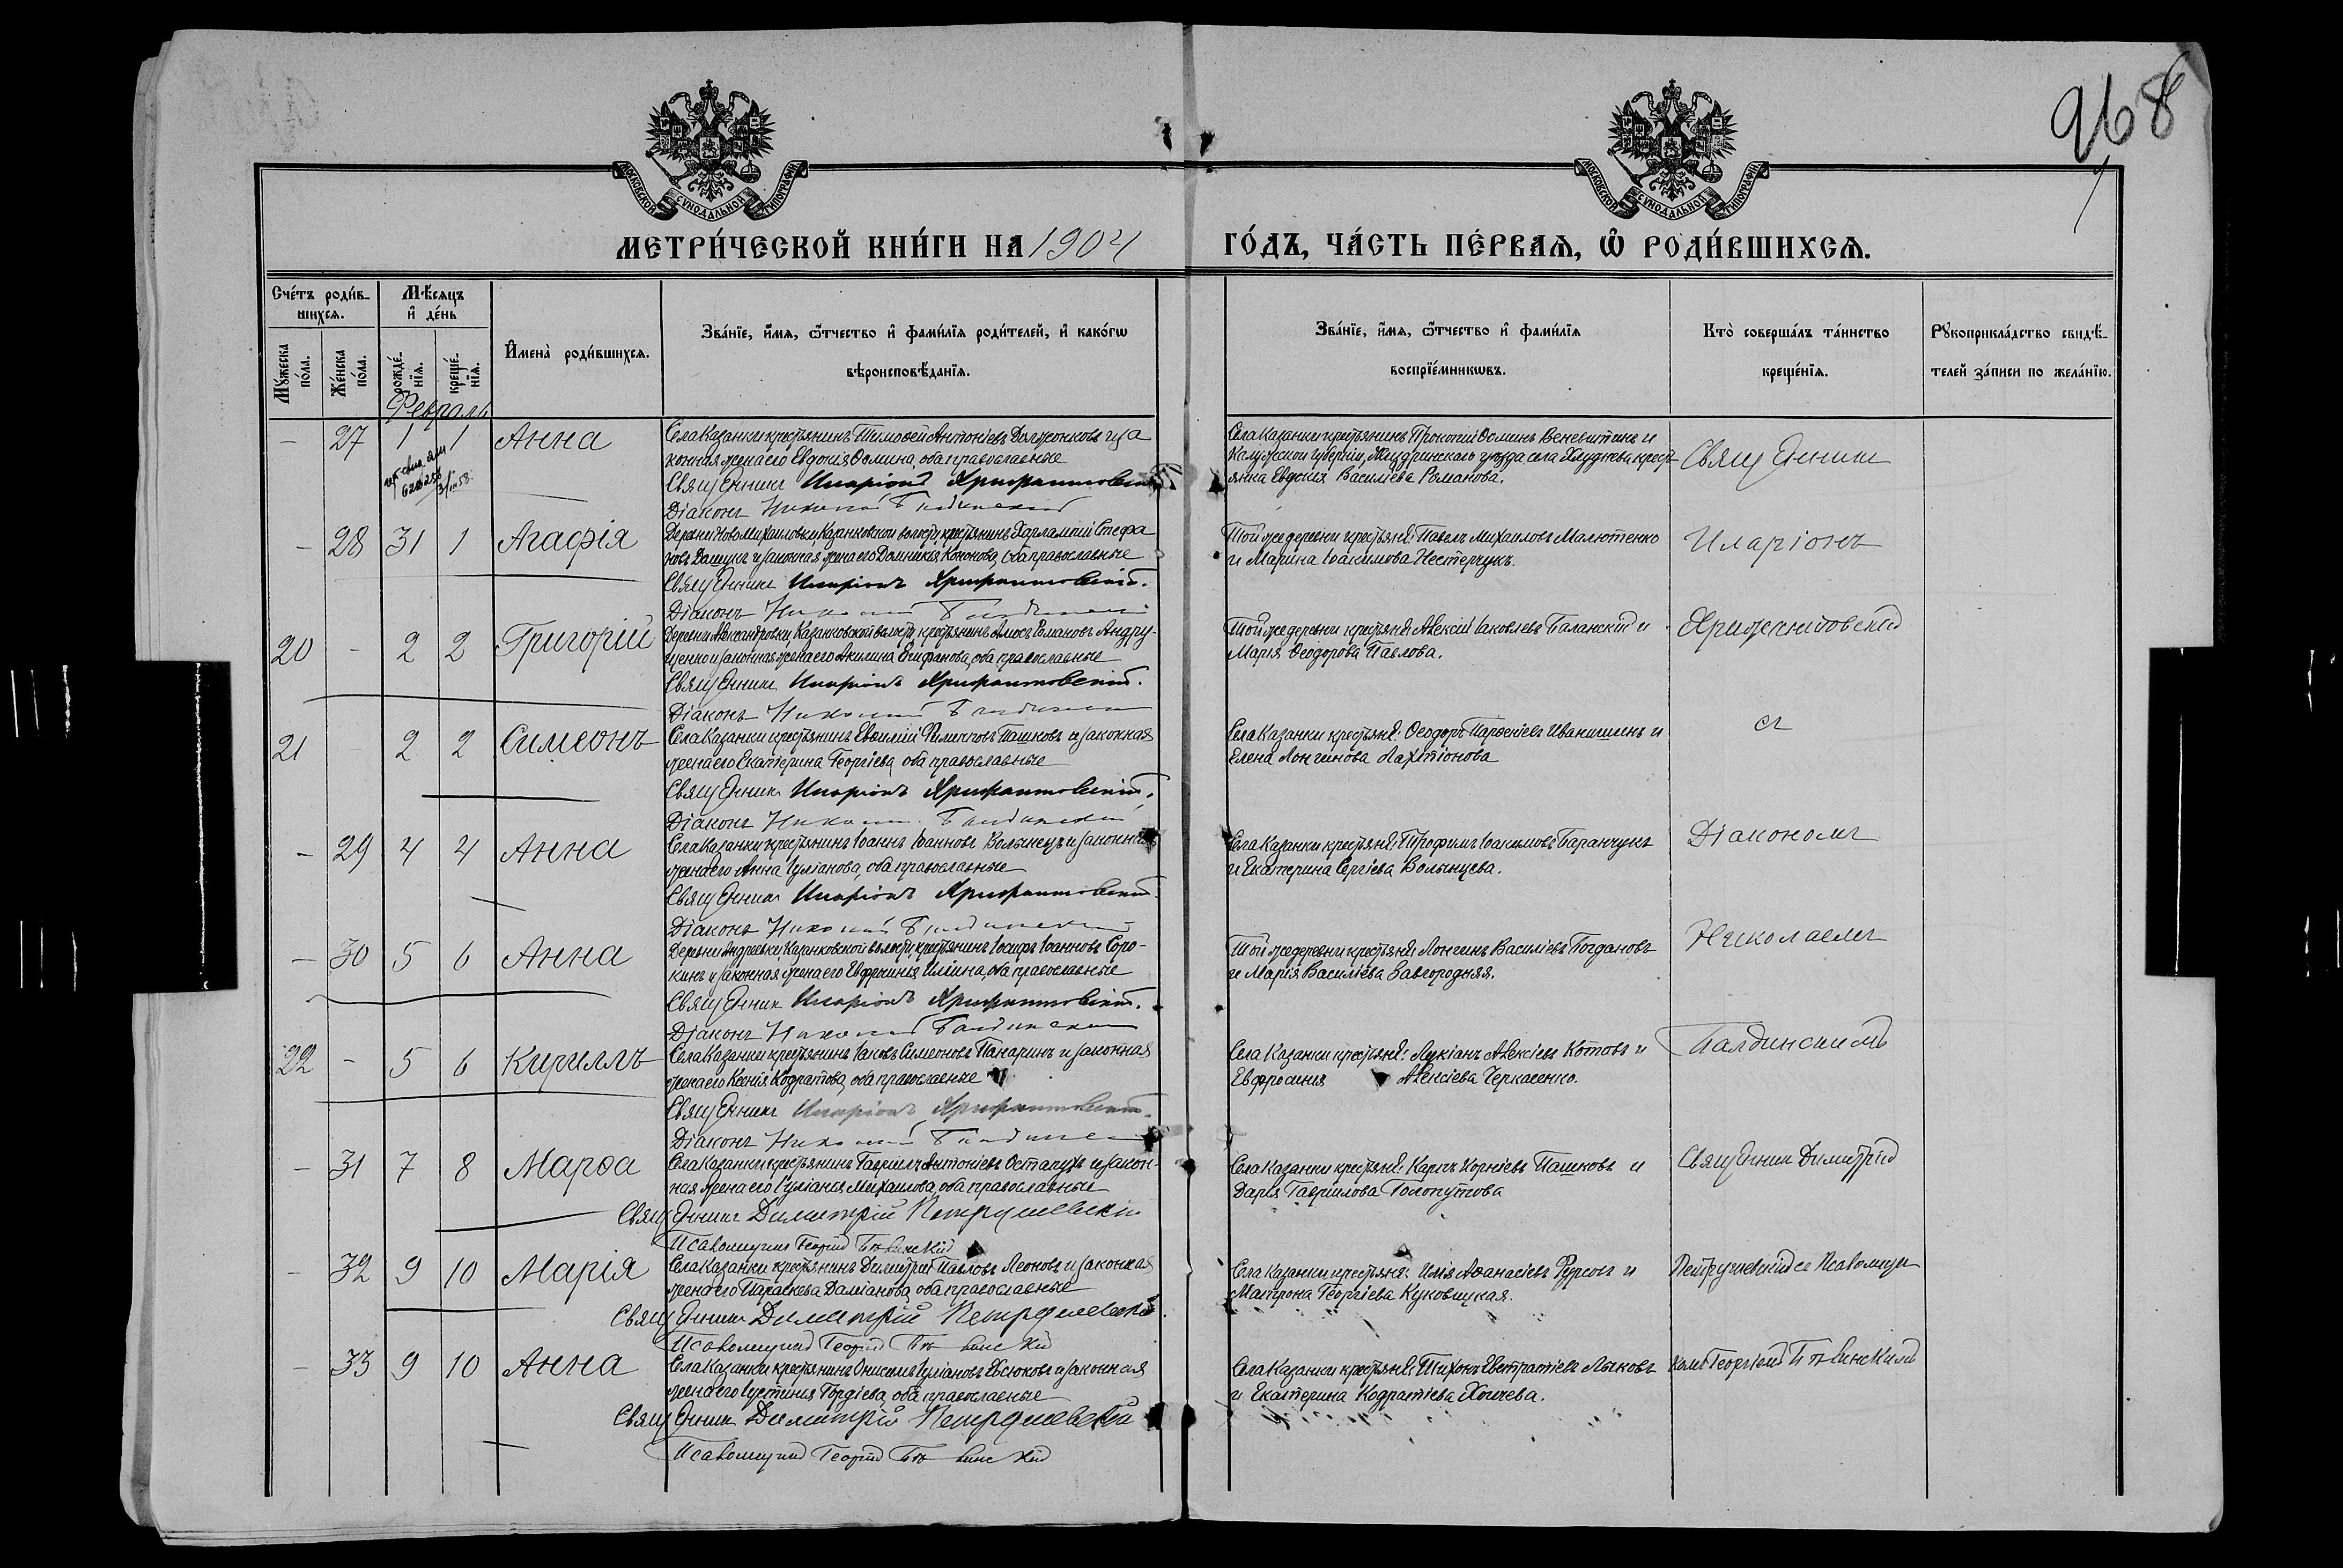 968
МОСКОВСКОЙ СѴНОДАЛЬНОЙ ТИПОГРАФІИ
МОСКОВСКОЙ СѴНОДАЛЬНОЙ ТИПОГРАФІИ
МЕТРИ́ЧЕСКОЙ КНИ́ГИ НА 1904 ГО́ДЪ, ЧА́СТЬ ПЕ́РВАѦ, Ѽ РОДИ́ВШИХСѦ.
Сче́тъ роди́в-
шихсѧ.
Мꙋ́жеска по́ла.
Же́нска по́ла.
Мѣ́сѧцъ
и҆ де́нь
рожде́-
нїѧ.
креще́-
нїѧ.
И҆мена̀ роди́вшихсѧ.
Зва́нїе, и҆́мѧ, ѻ҆́тчество и҆ фами́лїѧ роди́телей, и҆ како́гѡ
вѣроисповѣ́данїѧ.
Зва́нїе, и҆́мѧ, ѻ҆́тчество и҆ фами́лїѧ
воспрїе́мникѡвъ.
Кто̀ соверша́лъ та́инство
креще́нїѧ.
Рꙋкоприкла́дство свидѣ́-
телей за́писи по жела́нїю.
Февраль
— 27 1 1 Анна
Села Казанки крестьянинъ Тимоѳей Антоніевъ Должонковъ и за
конная жена его Евдокія Ѳомина, оба православные
Священникъ Иларіонъ Хрисанѳовскій
Діаконъ Николай Балдинскій
Села Казанки крестьянинъ Прокопій Ѳоминъ Веневитинъ и
Калужской губерніи, Жиздринскаго уѣзда села Хлуднева крест
янка Евдокія Василіева Романова.
Священник
— 28 31 1 Агафія
Деревни Ново Михайловки, Казанковской волости, крестьянинъ Харлампій Стефа
новъ Дащукъ и законная жена его Домникія Кононова, оба православные
Священникъ Иларіонъ Хрисанѳовскій.
Діаконъ Николай Балдинскій
Той же деревни крестьяне: Павелъ Михаиловъ Малютенко
и Марина Іоакимова Нестерчукъ.
Иларіонъ
20 — 2 2 Григорій
Деревни Александровки, Казанковской волости, крестьянинъ Амосъ Романовъ Андру-
щенко и законная жена его Акилина Епифанова, оба православные
Священникъ Иларіонъ Хрисанѳовскій.
Діаконъ Николай Балдинскій
Той же деревни крестьяне: Алексій Іаковлевъ Баланскій и
Марія Ѳеодорова Павлова.
Хрисанѳовскій
21 2 2 Симеонъ
Села Казанки крестьянинъ Евѳимій Филипповъ Пашковъ и законная
жена его Екатерина Георгіева, оба православные
Священникъ Иларіонъ Хрисанѳовскій.
Діаконъ Николай Балдинскій
Села Казанки крестьяне: Ѳеодоръ Парѳеніевъ Иванишинъ и
Елена Лонгинова Лахтіонова
съ
— 29 4 4 Анна
Села Казанки крестьянинъ Іоаннъ Іоанновъ Волынецъ и законная
жена его Анна Іуліанова, оба православные
Священникъ Иларіонъ Хрисанѳовскій
Діаконъ Николай Балдинскій
Села Казанки крестьяне: Трофимъ Іоакимовъ Баранчукъ
и Екатерина Сергіева Волынцева.
Діакономъ
— 30 5 6 Анна
Деревни Андреевки, Казанковской волости, крестьянинъ Іосифъ Іоанновъ Соро-
кинъ и законная жена его Евфросинія Иліина, оба православные
Священник Иларіонъ Хрисанѳовскій.
Діаконъ Николай Балдинскій
Той же деревни крестьяне: Лонгинъ Василіевъ Богдановъ
и Марія Василіева Завгородняя.
Николаемъ
22 — 5 6 Кириллъ
Села Казанки крестьянинъ Іаковъ Симеоновъ Панаринъ и законная
жена его Ксенія Кодратова, оба православные
Священникъ Иларіонъ Хрисанѳовскій.
Діаконъ Николай Балдинскій
Села Казанки крестьяне: Лукіанъ Алексіевъ Котовъ и
Евфросинія Алексіева Черкасенко.
Балдинскимъ
— 31 7 8 Марѳа
Села Казанки крестьянинъ Гавріилъ Антоніевъ Остапухъ и закон-
ная жена его Іуліанія Михаилова, оба православные
Священникъ Димитрій Петрушевскій
Псаломщикъ Георгій
Села Казанки крестьяне: Карпъ Корніевъ Пашковъ и
Дарія Гавріилова Голопутова
Священник Димитрій
— 32 9 10 Марія
Села Казанки крестьянинъ Димитрій Павловъ Леоновъ и законная
жена его Параскева Даміанова, оба православные
Священникъ Димитрій Петрушевскій
Псаломщикъ Георгій
Села Казанки крестьяне: Илія Аѳанасіевъ Фурсовъ и
Матрона Георгіева Куковицкая.
Петрушевскій съ Псаломщи
— 33 9 10 Анна
Села Казанки крестьянинъ Онисимъ Іуліановъ Евсюковъ и законная
жена его Іустинія Гордіева, оба православные
Священник Димитрій Петрушевскій
Псаломщикъ Георгій
Села Казанки крестьяне: Тихонъ Евстратіевъ Лыковъ
и Екатерина Кодратіева Хоичева.
комъ Георгіемъ